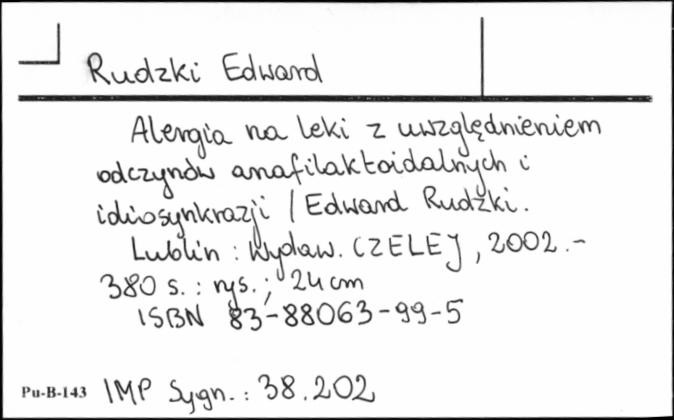 Rudzki Edward
Alergia na leki z uwzględnieniem
odczynów anafilaktoidalnych i
idiosynkrazji / Edward Rudzki.
Lublin : Wydaw. CZELEJ, 2002.-
380 s. : rys. ; 24 cm
ISBN 83-88063-99-5
Pu-B-143 IMP Sygn.: 38.202